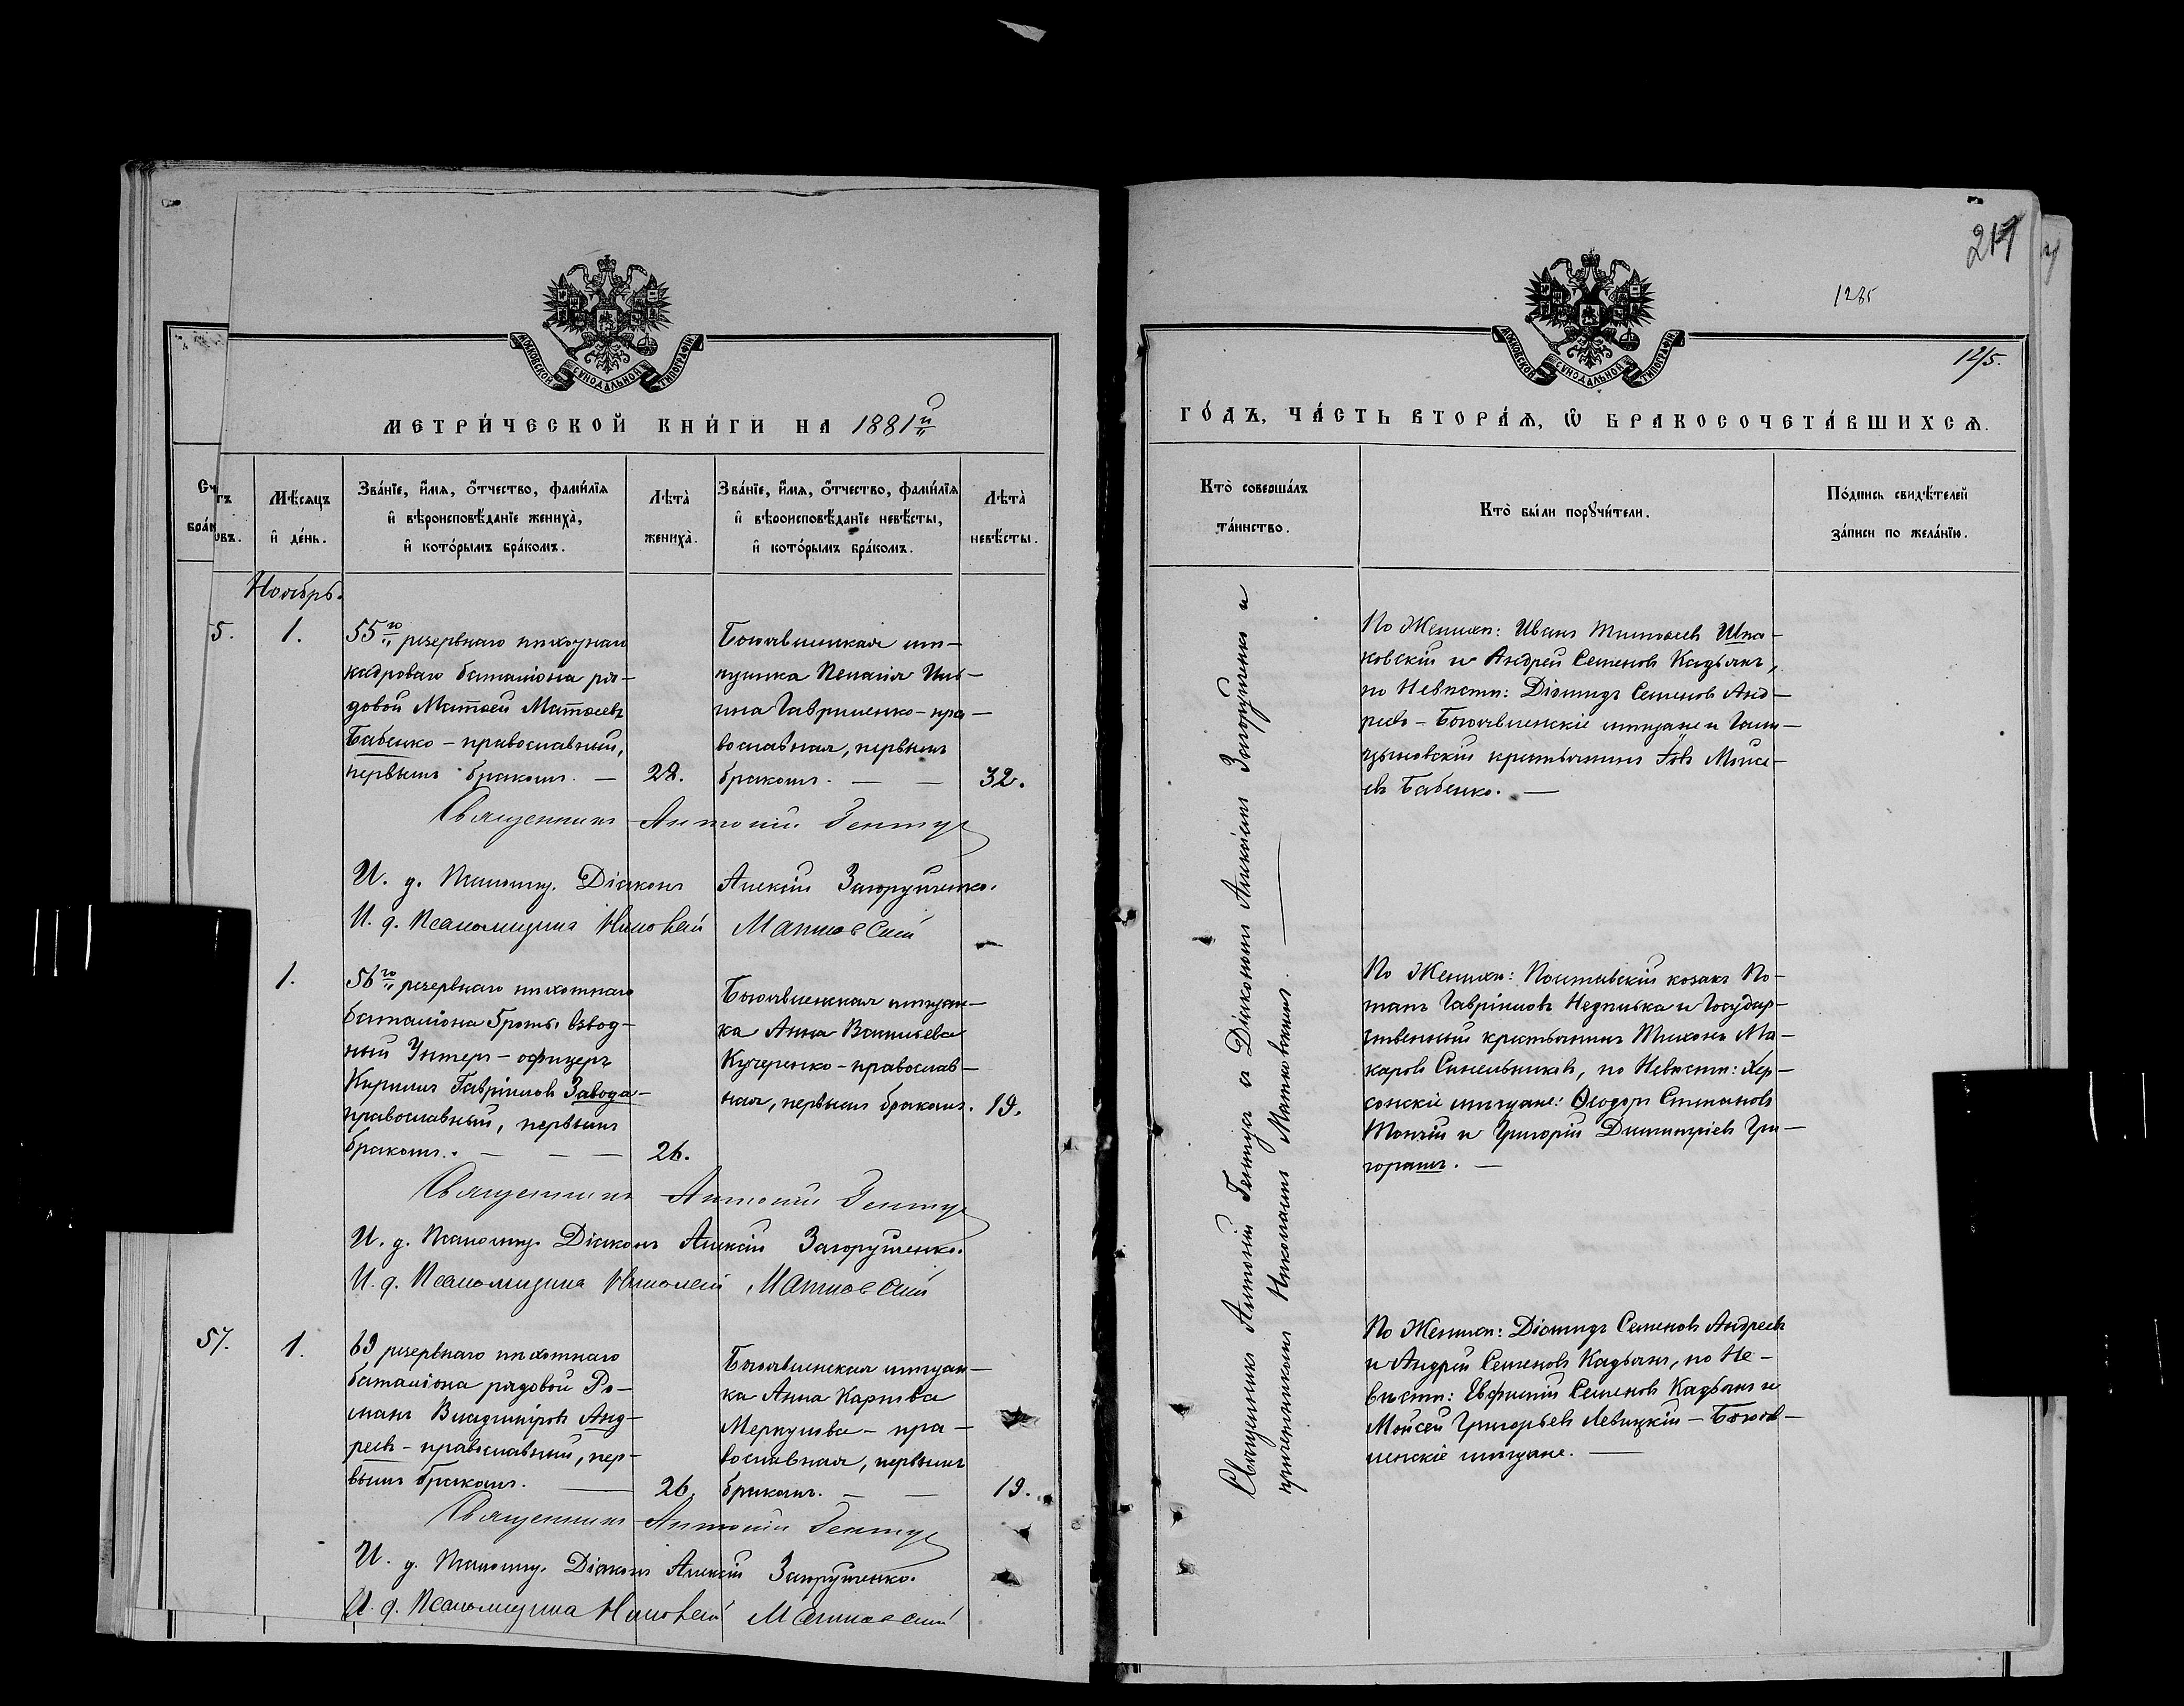 МОСКОВСКОЙ СѴНОДАЛЬНОЙ ТИПОГРАФІИ
МЕТРИ́ЧЕСКОЙ КНИ́ГИ НА 1881й
Мѣ́сяцъ и҆ де́нь.
Зва́нїе, и҆́мя, ѻ҆́тчество, фами́лїя и҆ вѣроисповѣ́данїе жениха̀, и҆ кото́рымъ бра́комъ.
Лѣта̀ жениха̀.
Зва́нїе, и҆́мя, ѻ҆́тчество, фами́лїя и҆ вѣроисповѣ́данїе невѣ́сты, и҆ кото́рымъ бра́комъ.
Лѣта̀ невѣ́сты.
Ноябрь.
5.
1.
55го резервнаго пѣхотнаго
кадроваго баталіона ря-
довой Матѳей Матѳеевъ
Бабенко - православный,
первымъ бракомъ. —
28.
Богоявленская мѣ-
щанка Пелагія
Гавриленко - пра-
вославная, первымъ
бракомъ. — —
32.
Священникъ Антоній Гентуз
И. д. псаломщ. Діаконъ Алексій Загоруйченко.
И. д. Псаломщика Николай Матковскій
1.
56го резервнаго пѣхотнаго
баталіона 5 роты взвод-
ный Унтеръ-офицеръ
Кириллъ Гавріиловъ Завода-
православный, первымъ
бракомъ. — — —
26.
Богоявленская мѣщан-
ка Анна Васильева
Кучеренко - православ-
ная, первымъ бракомъ.
19.
Священникъ Антоній Гентуз
И. д. Псаломщ. Діаконъ Алексій Загоруйченко.
И. д. Псаломщика Николай Матковскій
57.
1.
69 резервнаго пѣхотнаго
баталіона рядовой Ро-
манъ Владиміровъ Анд-
реевъ - православный, пер-
вымъ бракомъ. —
26.
Богоявленская мѣщан-
ка Анна Карпова
Меркулова - пра-
вославная, первымъ
бракомъ. — —
19.
Священникъ Антоній Гентуз
И. д. Псаломщ. Діаконъ Алексій Загоруйченко.
И. д. Псаломщика Николай Матковскій
217
1285
1215.
МОСКОВСКОЙ СѴНОДАЛЬНОЙ ТИПОГРАФІИ
ГО́ДЪ, ЧА́СТЬ ВТОРА́Ѧ, Ѡ҆ БРАКОСОЧЕТА́ВШИХСѦ.
Кто̀ соверша́лъ та́инство.
Кто̀ бы́ли порꙋчи́тели.
По́дпись свидѣ́телей за́писи по жела́нїю.
Священникъ Антоній Гентуз съ Діакономъ Алексіемъ Загоруйченко и
причетникомъ Николаемъ Матковскимъ. —
По Женихѣ: Иванъ Тимоѳеевъ Шпа-
ковскій и Андрей Семеновъ Кадьянъ,
по Невѣстѣ: Діомидъ Семеновъ Анд-
реевъ - Богоявленскіе мѣщане и
крестьянинъ Іовъ Моисе-
евъ Бабенко. —
По Женихѣ: Полтавскій козакъ По-
тапъ Гавріиловъ Недѣлька и Государ-
ственный крестьянинъ Тихонъ Ма-
каровъ Синельниковъ, по Невѣстѣ: Хер-
сонскіе мѣщане: Ѳеодоръ Степановъ
Топчій и Григорій Димитріевъ Гри-
горашъ. —
По Женихѣ: Діомидъ Семеновъ Андреевъ
и Андрей Семеновъ Кадьянъ, по Не-
вѣстѣ: Евфимій Семеновъ Кадьянъ и
Мойсей Григорьевъ Левицкій - Богояв-
ленскіе мѣщане. —